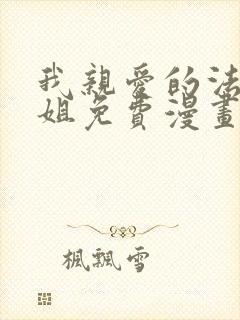 我親愛的法
姐免費漫畫
楓飄雪